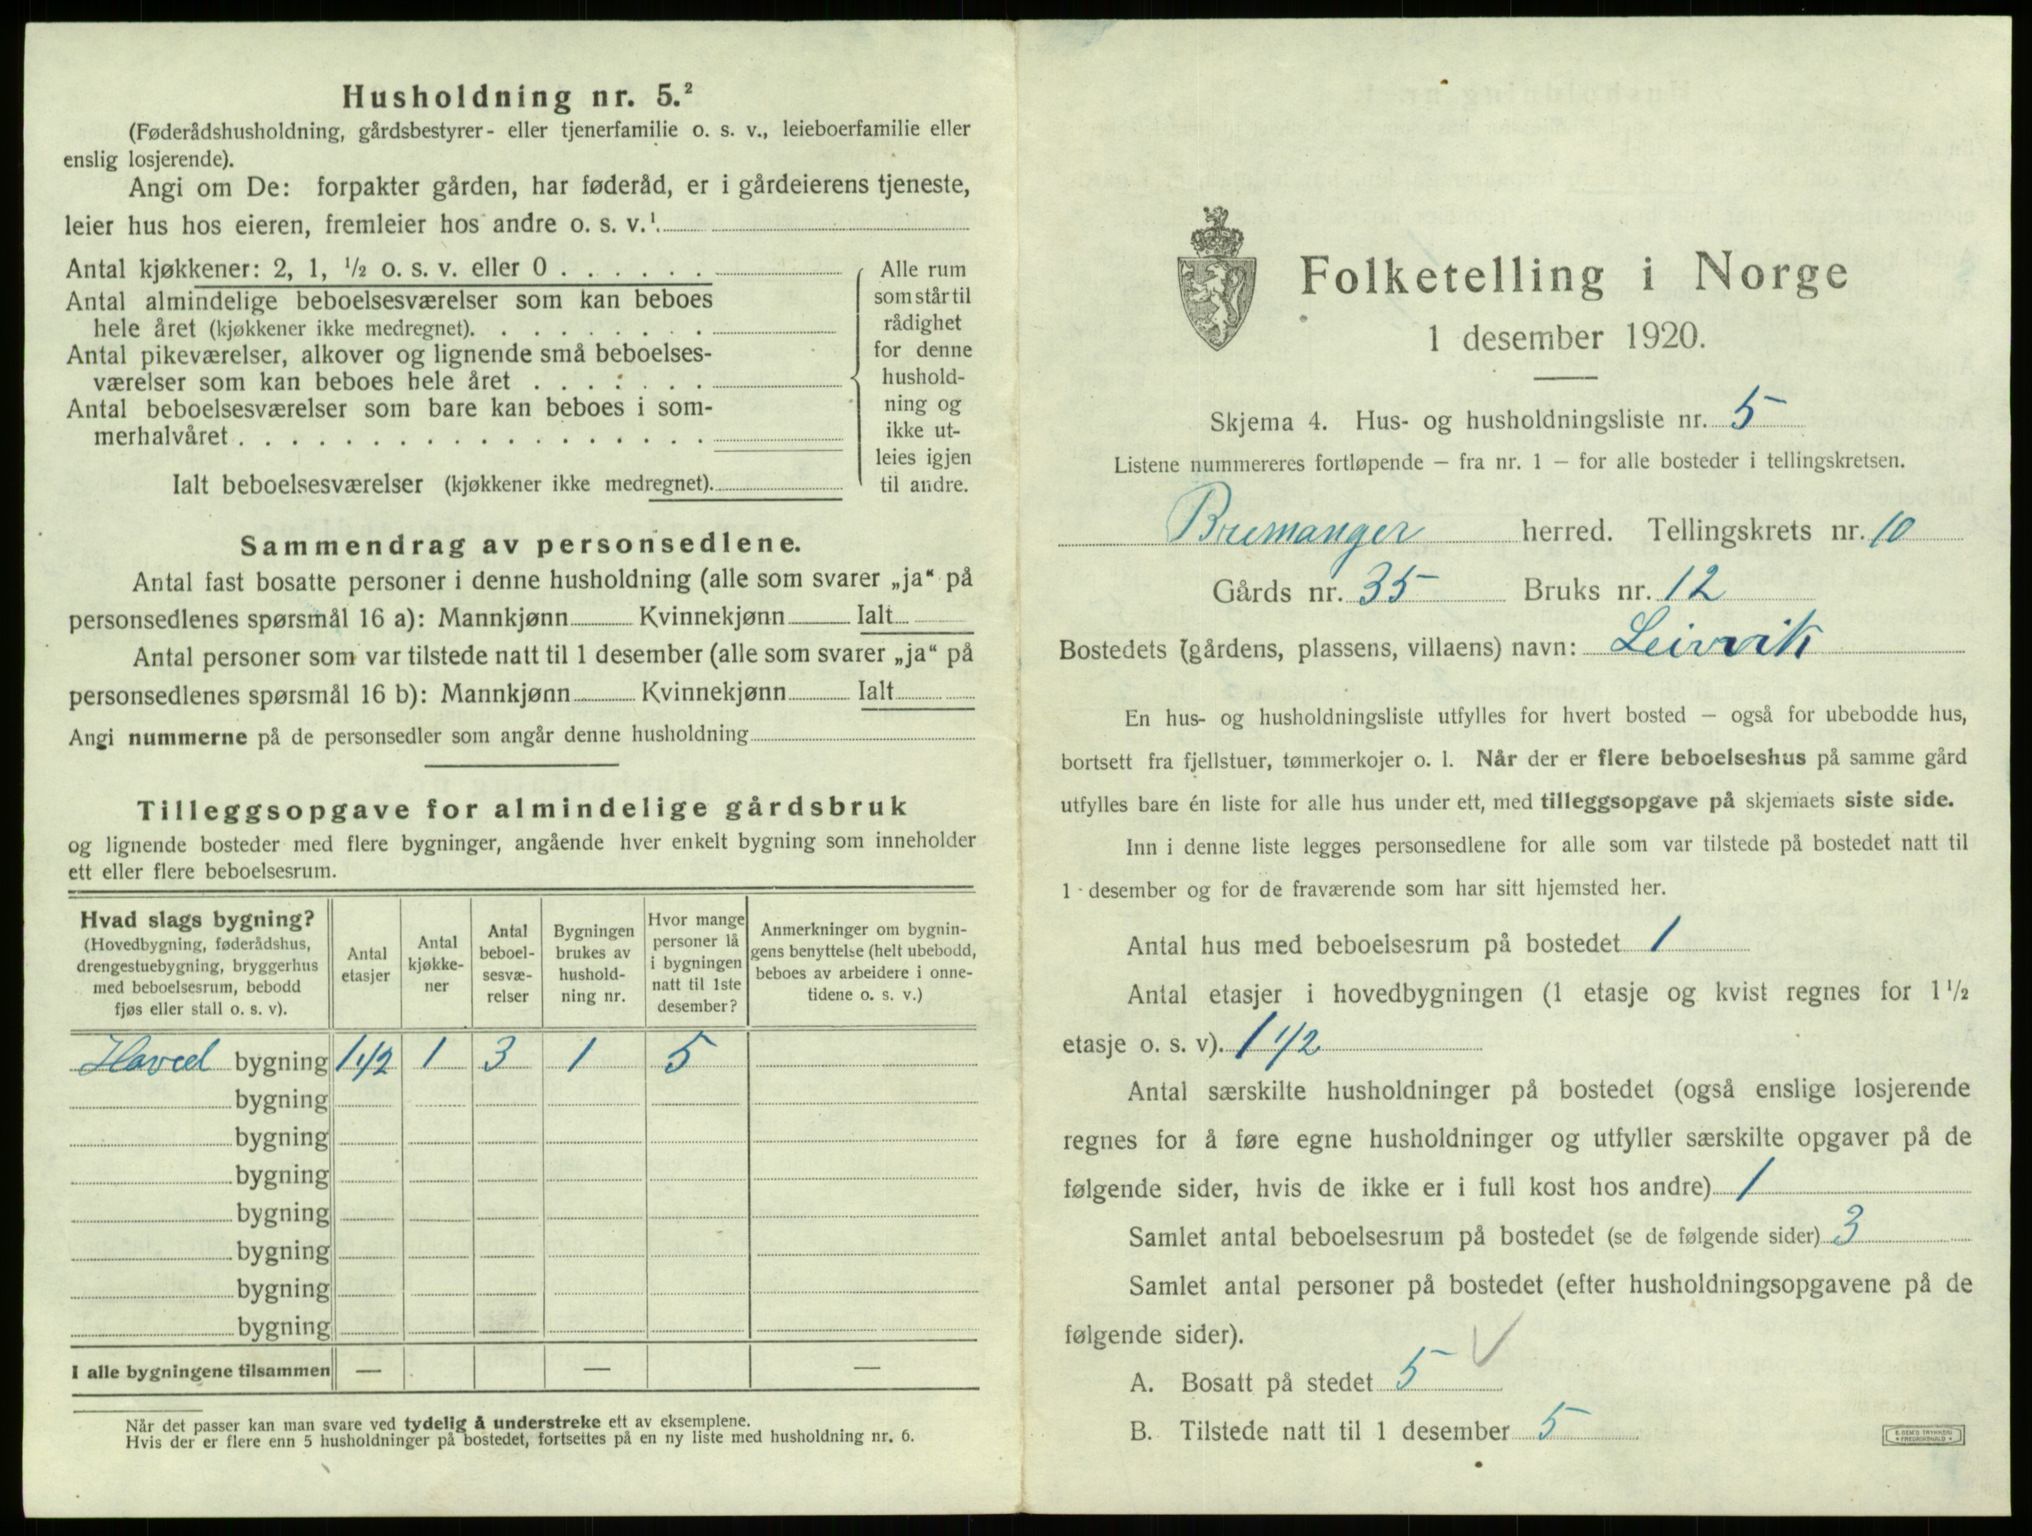 Husholdning nr. 5.²
(Føderådshusholdning, gårdsbestyrer- eller tjenerfamilie o. s. v., leieboerfamilie eller
enslig losjerende).
Angi om De: forpakter gården, har føderåd, er i gårdeierens tjeneste,
leier hus hos eieren, fremleier hos andre o. s. v.¹
Antal kjøkkener: 2, 1, ½ o. s. v. eller 0
Antal almindelige beboelsesværelser som kan beboes
hele året (kjøkkener ikke medregnet)
Antal pikeværelser, alkover og lignende små beboelses-
værelser som kan beboes hele året
Antal beboelsesværelser som bare kan beboes i som-
merhalvåret
Ialt beboelsesværelser (kjøkkener ikke medregnet)
Alle rum
som står til
rådighet
for denne
hushold-
ning og
ikke ut-
leies igjen
til andre.
Sammendrag av personsedlene.
Antal fast bosatte personer i denne husholdning (alle som svarer „ja“ på
personsedlenes spørsmål 16 a): Mannkjønn Kvinnekjønn Ialt
Antal personer som var tilstede natt til 1 desember (alle som svarer „ja“ på
personsedlenes spørsmål 16 b): Mannkjønn Kvinnekjønn Ialt
Angi nummerne på de personsedler som angår denne husholdning
Tilleggsopgave for almindelige gårdsbruk
og lignende bosteder med flere bygninger, angående hver enkelt bygning som inneholder
ett eller flere beboelsesrum.
Hvad slags bygning?
(Hovedbygning, føderådshus,
drengestuebygning, bryggerhus
med beboelsesrum, bebodd
fjøs eller stall o. s. v).
Antal
etasjer
Antal
kjøkke-
ner
Antal
beboel-
sesvæ-
relser
Bygningen
brukes av
hushold-
ning nr.
Hvor mange
personer lå
i bygningen
natt til 1ste
desember?
Anmerkninger om bygnin-
gens benyttelse (helt ubebodd,
beboes av arbeidere i onne-
tidene o. s. v.)
Hoved bygning 1 1/2 1 3 1 5
bygning
bygning
bygning
bygning
bygning
bygning
bygning
I alle bygningene tilsammen — — —
Når det passer kan man svare ved tydelig å understreke ett av eksemplene.
Hvis der er flere enn 5 husholdninger på bostedet, fortsettes på en ny liste med husholdning nr. 6.
Folketelling i Norge
1 desember 1920.
Skjema 4. Hus- og husholdningsliste nr. 5
Listene nummereres fortløpende – fra nr. 1 – for alle bosteder i tellingskretsen.
Bremanger herred. Tellingskrets nr. 10
Gårds nr. 35 Bruks nr. 12
Bostedets (gårdens, plassens, villaens) navn: Leirvik
En hus- og husholdningsliste utfylles for hvert bosted – også for ubebodde hus,
bortsett fra fjellstuer, tømmerkojer o. l. Når der er flere beboelseshus på samme gård
utfylles bare én liste for alle hus under ett, med tilleggsopgave på skjemaets siste side.
Inn i denne liste legges personsedlene for alle som var tilstede på bostedet natt til
1 desember og for de fraværende som har sitt hjemsted her.
Antal hus med beboelsesrum på bostedet 1
Antal etasjer i hovedbygningen (1 etasje og kvist regnes for 1 ½
etasje o. s. v). 1 1/2
Antal særskilte husholdninger på bostedet (også enslige losjerende
regnes for å føre egne husholdninger og utfyller særskilte opgaver på de
følgende sider, hvis de ikke er i full kost hos andre) 1
Samlet antal beboelsesrum på bostedet (se de følgende sider) 3
Samlet antal personer på bostedet (efter husholdningsopgavene på de
følgende sider).
A. Bosatt på stedet 5 ✓
B. Tilstede natt til 1 desember 5